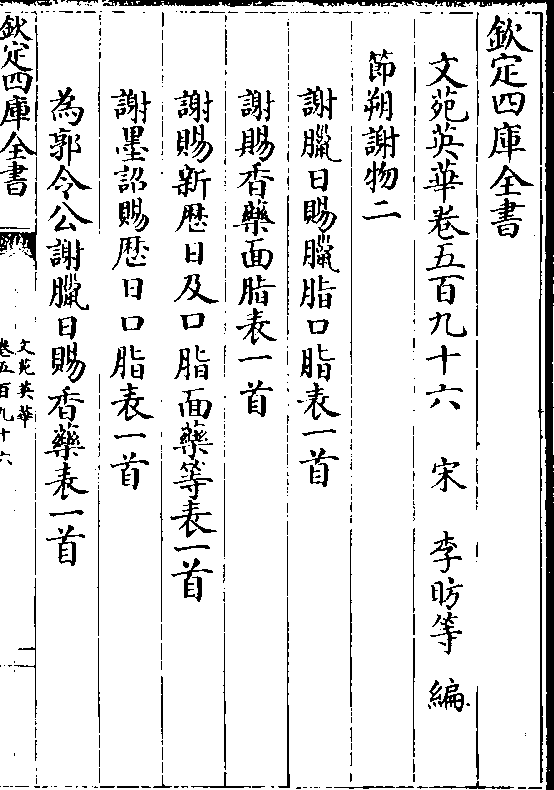 欽定四庫全書
文苑英華卷五百九十六　宋　李昉等　編
節朔謝物二
謝臘日賜臘脂口脂表一首
謝賜香藥面脂表一首
謝賜新歴日及口脂面藥等表一首
謝墨詔賜歴日口脂表一首
為郭令公謝臘日賜香藥表一首
欽定四庫全書
文苑英華
卷五百九十六
一